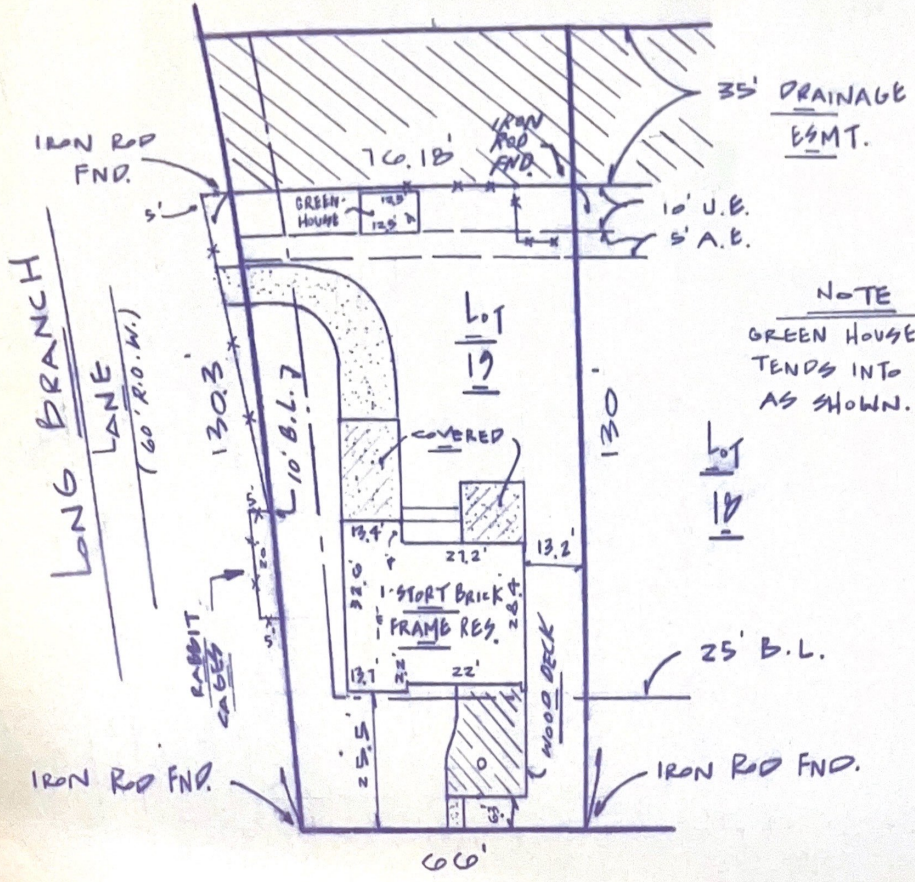 35' DRAINAGE
ESMT.
IRON ROD
FND.
76.18'
IRON
ROD
FND.
5'
GREEN-
HOUSE
12.5'
12.5'
10' U.E.
5' A.E.
LONG BRANCH
LANE
(60' R.O.W.)
130.3'
10' B.L.
LOT
19
130'
NOTE
GREEN HOUSE
TENDS INTO
AS SHOWN.
COVERED
LOT
18
5'
20
5'
RABBIT
CAGES
13.4'
27.2'
13.2'
32.0
1-STORY BRICK
FRAME RES.
28.4
13.7
2.2'
22'
WOOD DECK
25' B.L.
25.5'
IRON ROD FND.
IRON ROD FND.
66'